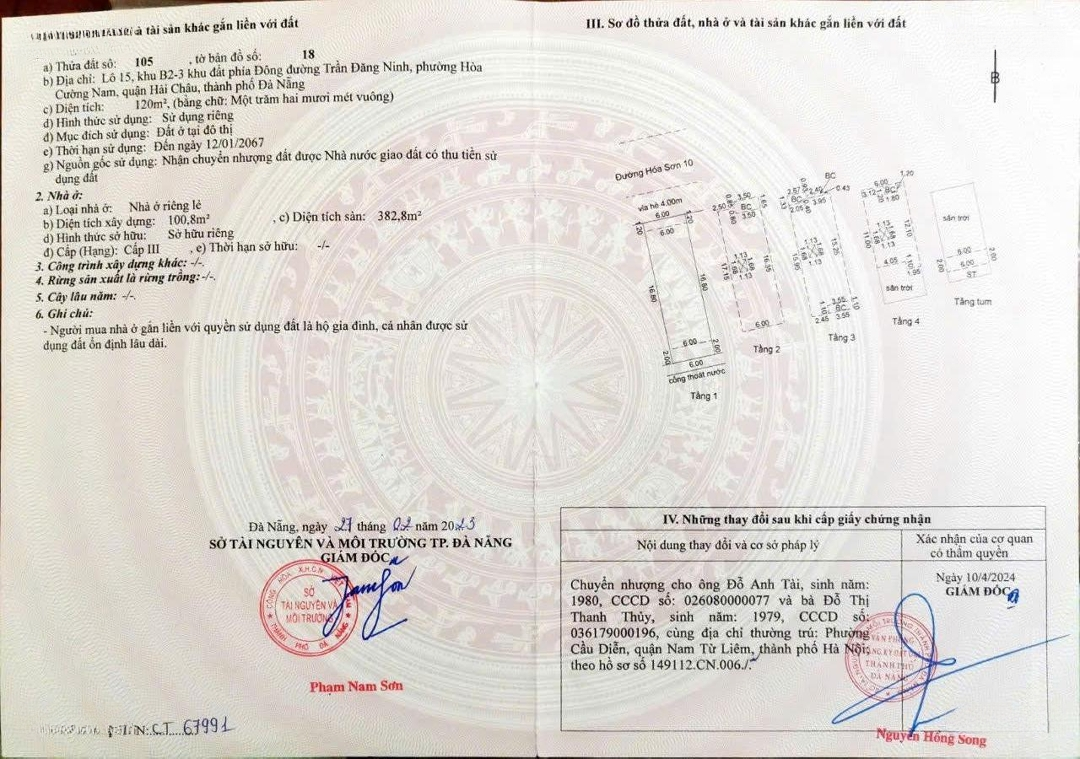 và tài sản khác gắn liền với đất
a) Thửa đất số: 105 , tờ bản đồ số: 18
b) Địa chỉ: Lô 15, khu B2-3 khu đất phía Đông đường Trần Đăng Ninh, phường Hòa
Cường Nam, quận Hải Châu, thành phố Đà Nẵng
c) Diện tích: 120m², (bằng chữ: Một trăm hai mươi mét vuông)
d) Hình thức sử dụng: Sử dụng riêng
đ) Mục đích sử dụng: Đất ở tại đô thị
e) Thời hạn sử dụng: Đến ngày 12/01/2067
g) Nguồn gốc sử dụng: Nhận chuyển nhượng đất được Nhà nước giao đất có thu tiền sử
dụng đất
2. Nhà ở:
a) Loại nhà ở: Nhà ở riêng lẻ
b) Diện tích xây dựng: 100,8m² , c) Diện tích sàn: 382,8m²
d) Hình thức sở hữu: Sở hữu riêng
đ) Cấp (Hạng): Cấp III , e) Thời hạn sở hữu: -/-
3. Công trình xây dựng khác: -/-.
4. Rừng sản xuất là rừng trồng:-/-.
5. Cây lâu năm: -/-.
6. Ghi chú:
- Người mua nhà ở gắn liền với quyền sử dụng đất là hộ gia đình, cá nhân được sử
dụng đất ổn định lâu dài.
Đà Nẵng, ngày 27 tháng 02 năm 2023
SỞ TÀI NGUYÊN VÀ MÔI TRƯỜNG TP. ĐÀ NẴNG
GIÁM ĐỐC
SỞ
TÀI NGUYÊN VÀ
MÔI TRƯỜNG
THÀNH PHỐ ĐÀ NẴNG
Phạm Nam Sơn
CT 67991
III. Sơ đồ thửa đất, nhà ở và tài sản khác gắn liền với đất
B
Đường Hóa Sơn 10
vỉa hè 4.00m
6.00
1.20
1.20
6.00
16.80
16.80
6.00
2.00
2.00
6.00
cống thoát nước
Tầng 1
2.50
0.85
0.80
3.50
BC
3.50
1.65
1.13
1.68
1.68
1.13
17.15
16.35
6.00
Tầng 2
BC
2.57
0.95
2.40
0.43
1.33
BC
2.05
0.80
3.95
1.13
1.68
1.68
1.13
15.90
15.25
1.10
3.55
1.10
BC
2.45
3.55
Tầng 3
6.00
1.20
3.12
BC
1.80
1.13
1.68
1.68
1.13
11.00
12.10
4.05
1.10
1.95
sân trời
Tầng 4
sân trời
6.00
2.00
2.00
6.00
ST
Tầng tum
IV. Những thay đổi sau khi cấp giấy chứng nhận
Nội dung thay đổi và cơ sở pháp lý
Xác nhận của cơ quan
có thẩm quyền
Chuyển nhượng cho ông Đỗ Anh Tài, sinh năm:
1980, CCCD số: 026080000077 và bà Đỗ Thị
Thanh Thủy, sinh năm: 1979, CCCD số:
036179000196, cùng địa chỉ thường trú: Phường
Cầu Diễn, quận Nam Từ Liêm, thành phố Hà Nội;
theo hồ sơ số 149112.CN.006./.
Ngày 10/4/2024
GIÁM ĐỐC
VĂN PHÒNG
ĐĂNG KÝ ĐẤT ĐAI
THÀNH PHỐ
ĐÀ NẴNG
Nguyễn Hồng Song